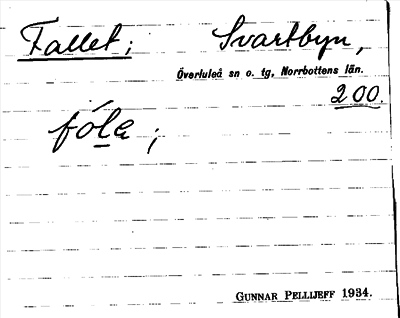 Fallet; Svartbyn,
Överluleå sn o. tg, Norrbottens län.
200.
fóla;
GUNNAR PELLIJEFF 1934.